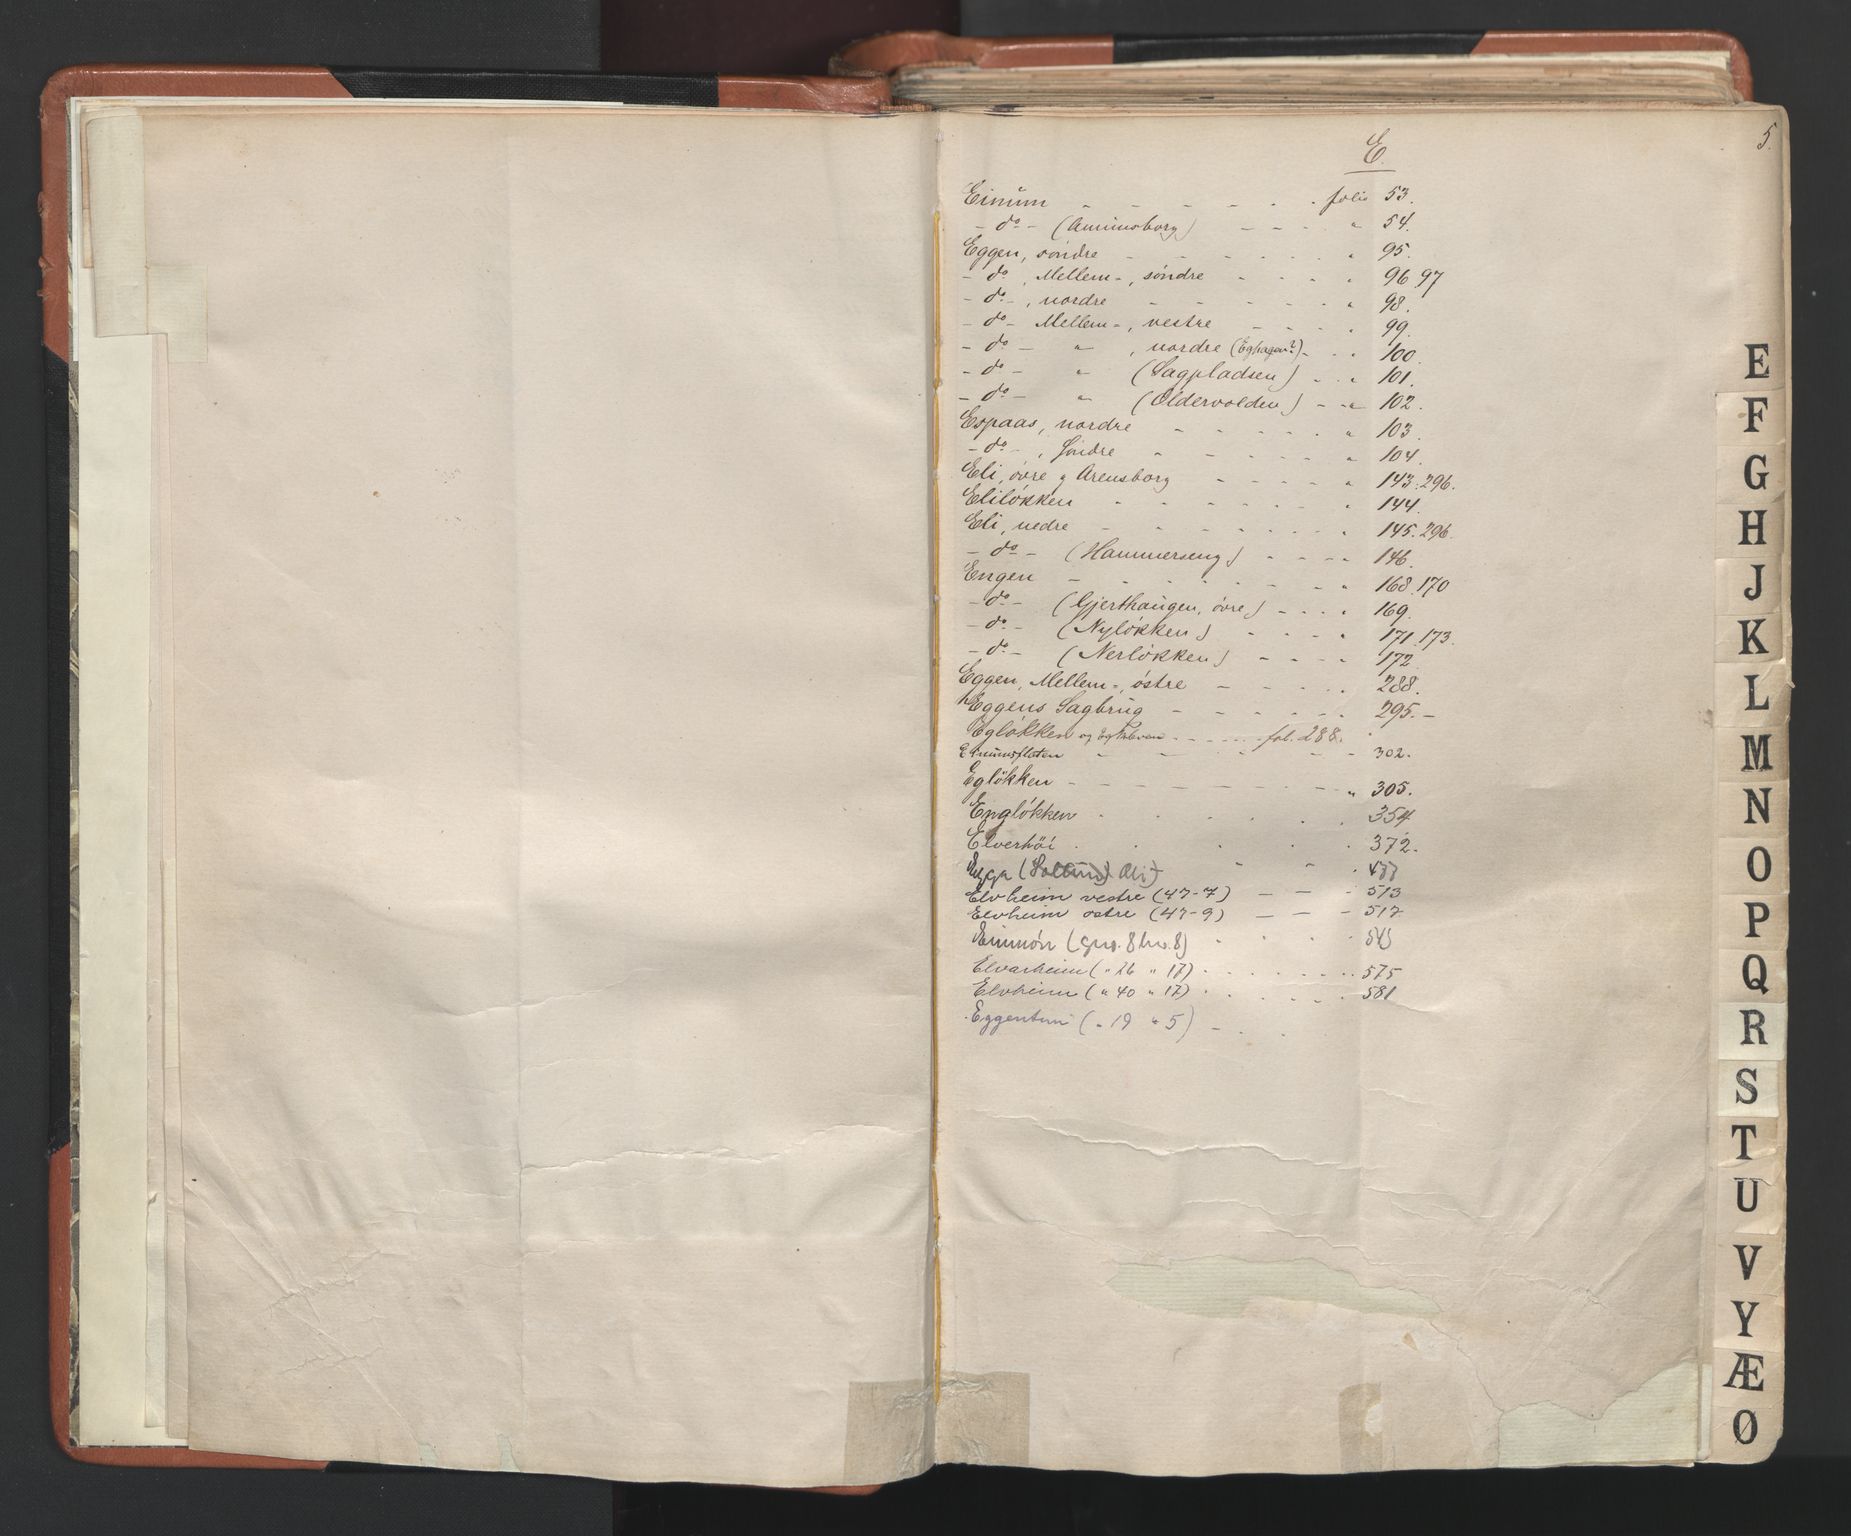 5.
E.
Einum - - - - - - folio 53.
- do - (Aunimsborg) - - - - " 54.
Eggen, söndre - - - - - - " 95.
- do , Mellem-, söndre - - - - 96 97
- do -, nordre - - - - - " 98.
- do - Mellem-, vestre - - - - 99.
- do - " , nordre (Eghagen?) - - - 100.
- do - " (Sagpladsen) - - - 101.
- do - " (Oldervolden) - - " 102.
Espaas, nordre - - - - - " 103.
- do - , Söndre - - - - - " 104.
Eli, övre og Arensborg - - - - - " 143. 296.
Elilökken - - - - - - " 144.
Eli, nedre - - - - - - 145. 296.
- do - (Hammerseng) - - - - 146.
Engen - - - - - - - " 168. 170
- do - (Gjerthaugen, övre) - - - - 169.
- do - (Nylökken) - - - - 171. 173.
- do - (Nerlökken) - - - - 172.
Eggen, Mellem-, östre - - - - - 288.
Eggens Sagbrug - - - - - - 295. -
Eglökken og - - - - - fol. 288.
Einumsflaten - - - " - - 302.
Eglökken - - - - - - - - " 305.
Englökken - - - - - - 354
Elverhöi . . . . . 372.
(Soltun) - - -
Elvheim vestre (47-7) - - - 513
Elvheim östre (47-9) - - - 517
Einmön (gno. 8 bno. 8) - - - -
Elvarheim ( " 26 " 17) - - - - - 575
Elvheim ( " 40 " 17) - - - - - 581
Eggentun ( " 19 " 5) - - -
E
F
G
H
J
K
L
M
N
O
P
Q
R
S
T
U
V
Y
Æ
Ø